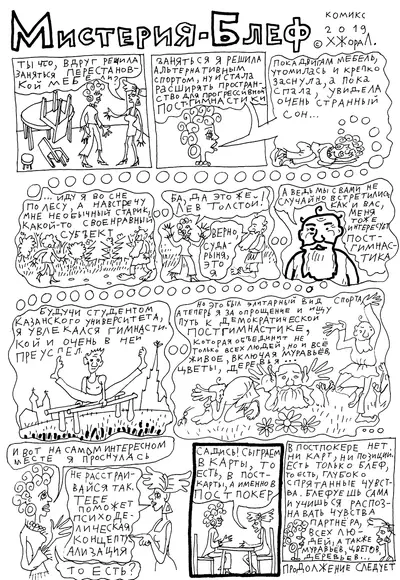 КОМИКС
2019
© ХЖоралъ.
МИСТЕРИЯ-БЛЕФ
ТЫ ЧТО, ВДРУГ РЕШИЛА
ЗАНЯТЬСЯ ПЕРЕСТАНОВ-
КОЙ МЕБЕЛИ?
ЗАНЯТЬСЯ Я РЕШИЛА
АЛЬТЕРНАТИВНЫМ
СПОРТОМ, НУ И СТАЛА
РАСШИРЯТЬ ПРОСТРАН-
СТВО ДЛЯ ПРОГРЕССИВНОЙ
ПОСТГИМНАСТИКИ
ПОКА ДВИГАЛА МЕБЕЛЬ,
УТОМИЛАСЬ И КРЕПКО
ЗАСНУЛА, А ПОКА
СПАЛА, УВИДЕЛА
ОЧЕНЬ СТРАННЫЙ
СОН...
...ИДУ Я ВО СНЕ
ПО ЛЕСУ, А НАВСТРЕЧУ
МНЕ НЕОБЫЧНЫЙ СТАРИК,
КАКОЙ-ТО СВОЕНРАВНЫЙ
СУБЪЕКТ
БА, ДА ЭТО ЖЕ
ЛЕВ ТОЛСТОЙ.
ВЕРНО,
СУДА-
РЫНЯ,
ЭТО
Я
А ВЕДЬ МЫ С ВАМИ НЕ
СЛУЧАЙНО ВСТРЕТИЛИСЬ,
КАК И ВАС,
МЕНЯ
ТОЖЕ
ИНТЕРЕСУЕТ
ПОСТ-
ГИМНА-
СТИКА
БУДУЧИ СТУДЕНТОМ
КАЗАНСКОГО УНИВЕРСИТЕТА,
Я УВЛЕКАЛСЯ ГИМНАСТИ-
КОЙ И ОЧЕНЬ В НЕЙ
ПРЕУСПЕЛ
НО ЭТО БЫЛ ЭЛИТАРНЫЙ ВИД СПОРТА,
А ТЕПЕРЬ Я ЗА ОПРОЩЕНИЕ И ИЩУ
ПУТЬ К ДЕМОКРАТИЧЕСКОЙ
ПОСТГИМНАСТИКЕ,
КОТОРАЯ ОБЪЕДИНИТ НЕ
ТОЛЬКО ВСЕХ ЛЮДЕЙ, НО И ВСЁ
ЖИВОЕ, ВКЛЮЧАЯ МУРАВЬЁВ,
ЦВЕТЫ, ДЕРЕВЬЯ...
И ВОТ НА САМОМ ИНТЕРЕСНОМ
МЕСТЕ Я ПРОСНУЛАСЬ
НЕ РАССТРА-
ИВАЙСЯ ТАК.
ТЕБЕ
ПОМОЖЕТ
ПСИХОДЕ-
ЛИЧЕСКАЯ
КОНЦЕПТУ-
АЛИЗАЦИЯ
ТО ЕСТЬ?
САДИСЬ! СЫГРАЕМ
В КАРТЫ, ТО
ЕСТЬ, В ПОСТ-
КАРТЫ, А ИМЕННО В
ПОСТПОКЕР
В ПОСТПОКЕРЕ НЕТ
НИ КАРТ, НИ ПОЗИЦИЙ.
ЕСТЬ ТОЛЬКО БЛЕФ,
ТО ЕСТЬ, ГЛУБОКО
СПРЯТАННЫЕ ЧУВСТ-
ВА. БЛЕФУЕШЬ САМА
И УЧИШЬСЯ РАСПОЗ-
НАВАТЬ ЧУВСТВА
ПАРТНЁРА,
ВСЕХ ЛЮ-
ДЕЙ, А ТАКЖЕ
МУРАВЬЁВ, ЦВЕТОВ,
ДЕРЕВЬЕВ...
ПРОДОЛЖЕНИЕ СЛЕДУЕТ